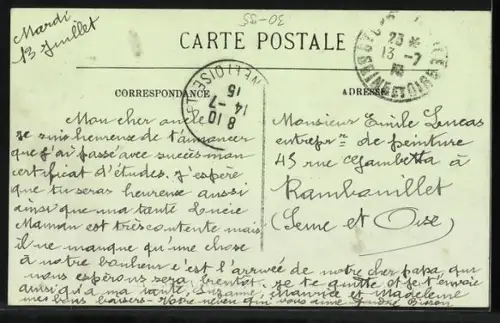 Mardi
13 Juillet
30-85
CARTE POSTALE
CORRESPONDANCE
ADRESSE
23
13 -7
SEINE ET OISE
8 10
14 -7
15
Mon cher oncle
Je suis heureuse de t'annoncer
que j'ai passé avec succès mon
certificat d'études. J'espère
que tu seras heureuse aussi
ainsi que ma tante Lucie
Maman est très contente mais
il ne manque qu'une chose
à notre bonheur c'est l'arrivée de notre cher papa, que
nous espérons sera bientôt. Je te quitte et t'envoie
ainsi qu'à ma tante, Suzanne, Maurice et Madeleine
mes bons baisers - Votre neveu qui vous aime
Monsieur Emile Lucas
entrepr de peinture
45 rue Gambetta à
Rambouillet
(Seine et Oise)